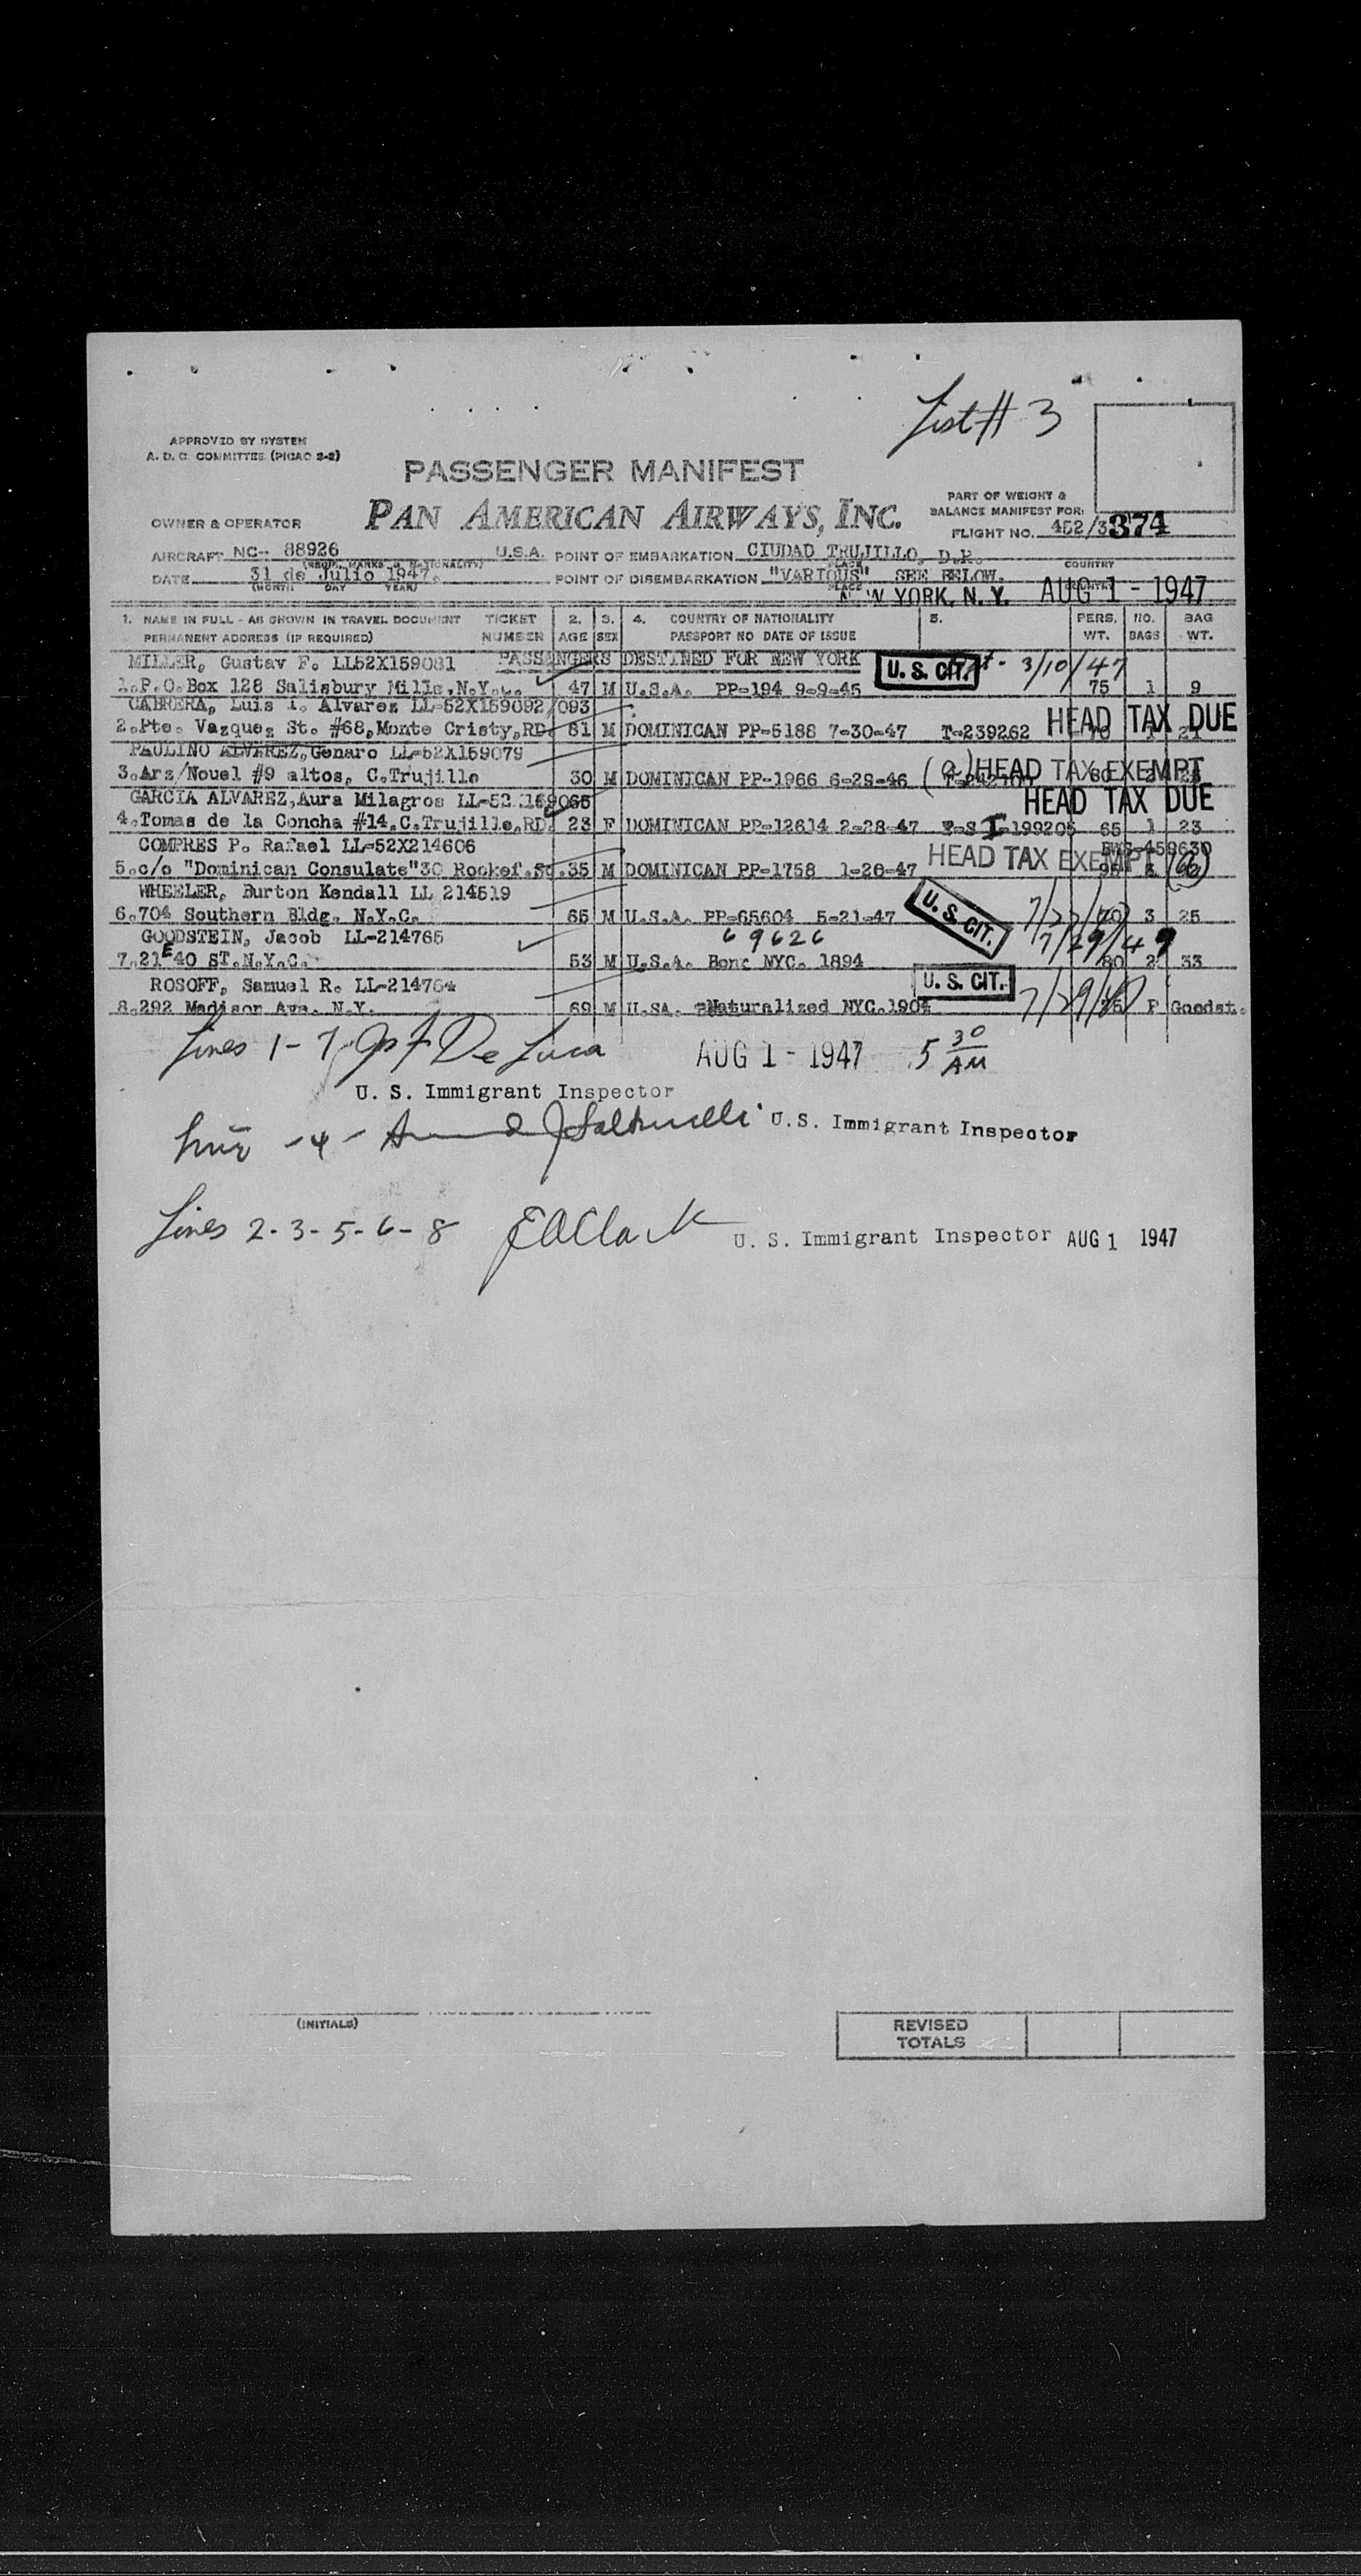 List # 3
APPROVED BY SYSTEM
A. D. C. COMMITTEE (PICAO 2-2)
PASSENGER MANIFEST
PART OF WEIGHT &
BALANCE MANIFEST FOR:
OWNER & OPERATOR PAN AMERICAN AIRWAYS, INC.
FLIGHT NO. 452/3 374
AIRCRAFT NC- 88926 U.S.A. POINT OF EMBARKATION CIUDAD TRUJILLO, D.R.
(REGIS. MARKS & NATIONALITY) PLACE COUNTRY
DATE 31 de Julio 1947. POINT OF DISEMBARKATION "VARIOUS" SEE BELOW.
(MONTH DAY YEAR) PLACE
W YORK, N. Y. AUG 1 - 1947
1. NAME IN FULL - AS SHOWN IN TRAVEL DOCUMENT TICKET 2. 3. 4. COUNTRY OF NATIONALITY 5. PERS. NO. BAG
PERMANENT ADDRESS (IF REQUIRED) NUMBER AGE SEX PASSPORT NO DATE OF ISSUE WT. BAGS WT.
MILLER, Gustav F. LL52X159081 PASSENGERS DESTINED FOR NEW YORK U. S. CIT. 3/10/47
1.P.O.Box 128 Salisbury Mills,N.Y. 47 M U.S.A. PP-194 9-9-45 75 1 9
CABRERA, Luis A. Alvarez LL-52X159092/093
2.Pte. Vazquez St. #68,Monte Cristy,RD. 61 M DOMINICAN PP-5188 7-30-47 T-239262 HEAD TAX DUE
PAULINO ALVEREZ,Genaro LL-52X159079
3.Arz/Nouel #9 altos, C.Trujillo 30 M DOMINICAN PP-1966 6-28-46 (a) HEAD TAX EXEMPT
GARCIA ALVAREZ,Aura Milagros HEAD TAX DUE
4.Tomas de la Concha #14.C.Trujillo,RD. 23 F DOMINICAN PP-12614 2-28-47 I-199205 65 1 23
COMPRES P. Rafael LL-52X214606 459630
5.c/o "Dominican Consulate"30 Rockef. 35 M DOMINICAN PP-1758 1-28-47 HEAD TAX EXEMPT (a)
WHEELER, Burton Kendall LL 214519
6.704 Southern Bldg. N.Y.C. 65 M U.S.A. PP-65604 5-21-47 U. S. CIT. 3 25
GOODSTEIN, Jacob LL-214765 69626 7/29/47
7.21 E 40 ST.N.Y.C. 53 M U.S.A. NYC. 1894 2 33
ROSOFF, Samuel R. LL-214764 U. S. CIT.
8.292 Madison Ave. N.Y. 69 M U.SA. Naturalized NYC.1904 P Goodst.
Lines 1-7 De Luca AUG 1 - 1947 5 30 AM
U. S. Immigrant Inspector
Line -4- U.S. Immigrant Inspector
Lines 2-3-5-6-8 EAClark U. S. Immigrant Inspector AUG 1 1947
(INITIALS)
REVISED
TOTALS